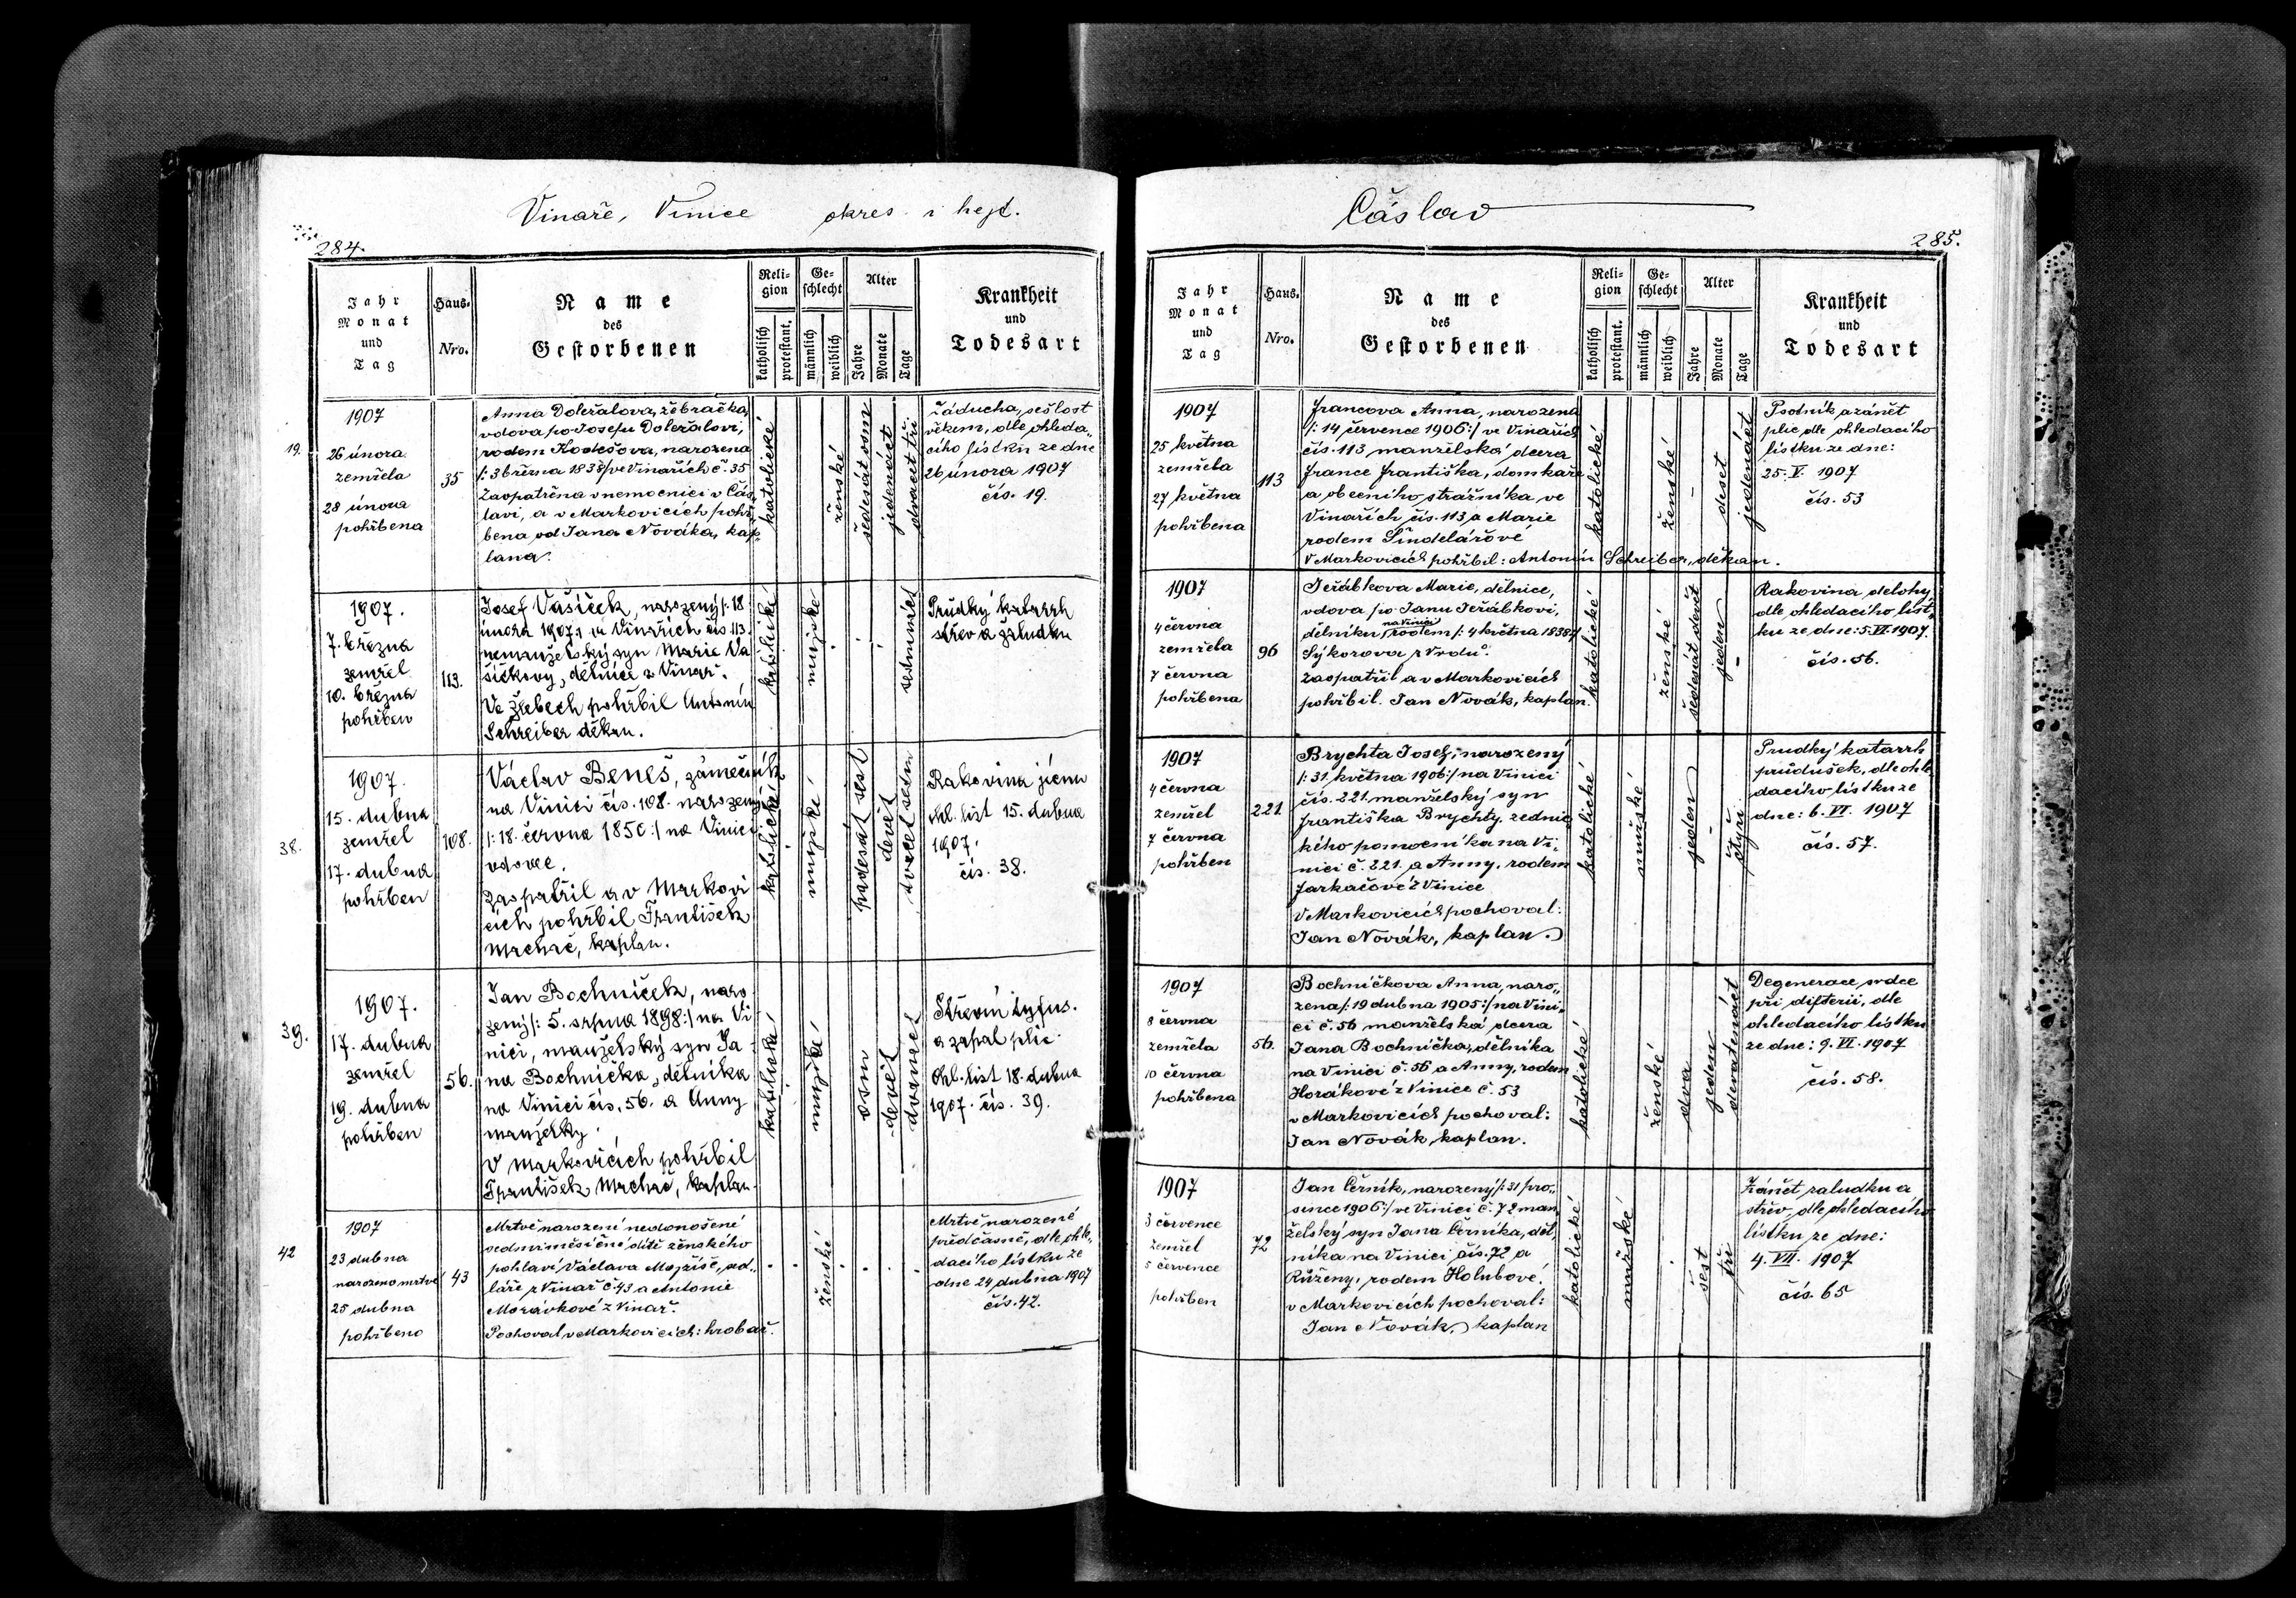 Vinaře, Vinice okres i hejt.
284.
Jahr
Monat
und
Tag
Haus-
Nro.
Name
des
Gestorbenen
Reli-
gion
katholisch
protestant.
Ge-
schlecht
männlich
weiblich
Alter
Jahre
Monate
Tage
Krankheit
und
Todesart
19.
1907
26 února
zemřela
28 února
pohřbena
35
Anna Doležalova, žebračka,
vdova po Josefu Doležalovi,
rodem Kodešova, narozena
/: 3 března 1838 :/ ve Vinařích č. 35
Zaopatřena v nemocnici v Čás„
lavi, a v Markovicích pohř„
bena od Jana Nováka, kap„
lana.
katolické
ženské
šedesát osm
jedenáct
dvacet tři
Žáducha, sešlost
věkem, dle ohleda„
cího lístku ze dne
26 února 1907
čís. 19.
1907.
7. března
zemřel
10. března
pohřben
113.
Josef Vašíček, narozený /: 18
února 1907 :/ ve Vinařích čís. 113.
nemanželský syn Marie Va
šíčkovy, dělnice z Vinař.
Ve Žlebech pohřbil Antonín
Schreiber děkan.
katolické
mužské
sedmnáct
Prudký katarrh
střev a žaludku
38.
1907.
15. dubna
zemřel
17. dubna
pohřben
108.
Václav Beneš, zámečník
na Vinici čís. 108. narozený
/: 18. června 1850 :/ na Vinici
vdovec.
Zaopatřil a v Markovi
cích pohřbil František
Machač, kaplan.
katolické
mužské
padesát šest
devět
dvacet sedm
Rakovina jícnu
ohl. list 15. dubna
1907.
čís. 38.
39.
1907.
17. dubna
zemřel
19. dubna
pohřben
56.
Jan Bochníček, naro
zený /: 5. srpna 1898 :/ na Vi
nici, manželský syn Ja
na Bochníčka, dělníka
na Vinici čís. 56. a Anny
manželky.
V Markovicích pohřbil
František Machač, kaplan.
katolické
mužské
osm
devět
dvanáct
Střevní tyfus.
a zápal plic.
Ohl. list 18. dubna
1907. čís. 39.
42
1907
23 dubna
narozeno mrtvé
25 dubna
pohřbeno
43
Mrtvě narozené nedonošené
sedmiměsíční dítě ženského
pohlaví Václava Mojžíše,
z Vinař č. 43 a Antonie
Morávkové z Vinař.
Pochoval v Markovicích: hrobař.
ženské
Mrtvě narozené
předčasně, dle ohle„
dacího lístku ze
dne 24 dubna 1907
čís. 42.
Čáslav
285.
Jahr
Monat
und
Tag
Haus-
Nro.
Name
des
Gestorbenen
Reli-
gion
katholisch
protestant.
Ge-
schlecht
männlich
weiblich
Alter
Jahre
Monate
Tage
Krankheit
und
Todesart
1907
25 května
zemřela
27 května
pohřbena
113
Francova Anna, narozena
/: 14 července 1906 :/ ve Vinařích
čís. 113 manželská dcera
France Františka, domkáře
a obecního strážníka ve
Vinařích čís. 113 a Marie
rodem Šindelářové
V Markovicích pohřbil: Antonín Schreiber, děkan.
katolické
ženské
deset
jedenáct
Psotník a zánět
plic dle ohledacího
lístku ze dne:
25. V. 1907
čís. 53
1907
4 června
zemřela
7 června
pohřbena
96
Jeřábkova Marie, dělnice,
vdova po Janu Jeřábkovi,
dělníku na Vinici rodem /: 4 května 1838 :/
Sýkorova z Vrdů.
Zaopatřil a v Markovicích
pohřbil. Jan Novák, kaplan.
katolické
ženské
šedesát devět
jeden
Rakovina dělohy
dle ohledacího líst„
ku ze dne: 5. VI. 1907.
čís. 56.
1907
4 června
zemřel
7 června
pohřben
221
Brychta Josef, narozený
/: 31. května 1906 :/ na Vinici
čís. 221. manželský syn
Františka Brychty, zednic
kého pomocníka na Vi„
nici č. 221. a Anny, rodem
Jarkačové z Vinice
V Markovicích pochoval:
Jan Novák, kaplan.
katolické
mužské
jeden
čtyři
Prudký katarrh
průdušek, dle ohle
dacího lístku ze
dne: 6. VI. 1907
čís. 57.
1907
8 června
zemřela
10 června
pohřbena
56.
Bochníčkova Anna, naro„
zena /: 19 dubna 1905 :/ na Vini„
ci č. 56 manželská dcera
Jana Bochníčka, dělníka
na Vinici č. 56 a Anny, rodem
Horákové z Vinice č. 53
v Markovicích pochoval:
Jan Novák, kaplan.
katolické
ženské
dva
jeden
devatenáct
Degenerace srdce
při difterii, dle
ohledacího lístku
ze dne: 9. VI. 1907
čís. 58.
1907
3 července
zemřel
5 července
pohřben
72
Jan Černík, narozený /: 31 pro„
since 1906 :/ ve Vinici č. 72 man„
želský syn Jana Černíka, děl„
níka na Vinici čís. 72 a
Růženy, rodem Holubové.
v Markovicích pochoval:
Jan Novák, kaplan
katolické
mužské
šest
tři
Zánět žaludku a
střev, dle ohledacího
lístku ze dne:
4. VII. 1907
čís. 65